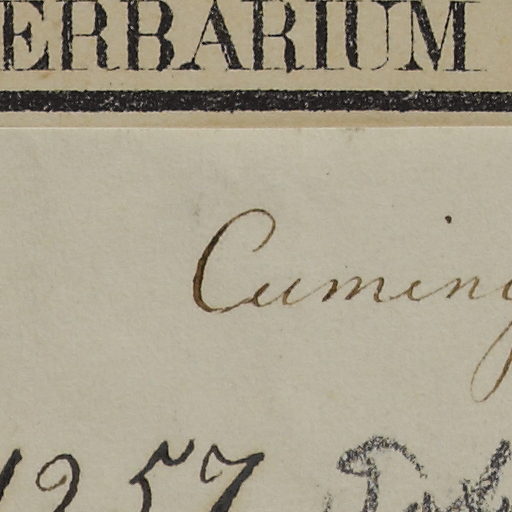 ERBARIUM
Cuming
1257